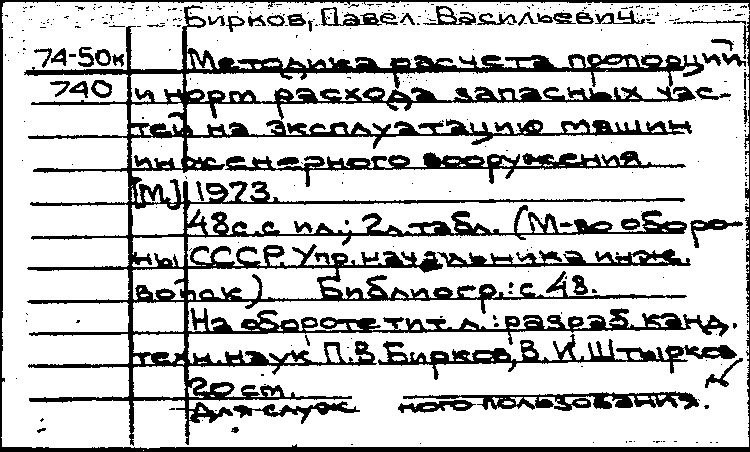 Бирков, Павел Васильевич.
74-50к Методика расчета пропорций
740 и норм расхода запасных час-
тей на эксплуатацию машин
инженерного вооружения.
[М.], 1973.
48с. с ил.; 2л. табл. (М-во оборо-
ны СССР. Упр. начальника инж.
войск). Библиогр.: с. 48.
На обороте тит. л.: разраб. канд.
техн. наук П.В. Бирков, В.И. Штырков
20 см.
Для служ ного пользования.